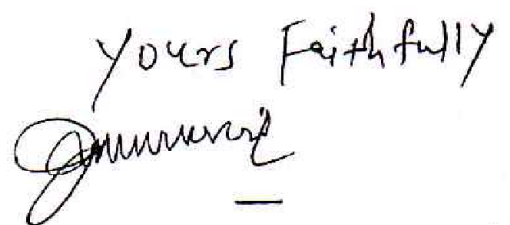 Yours Faithfully